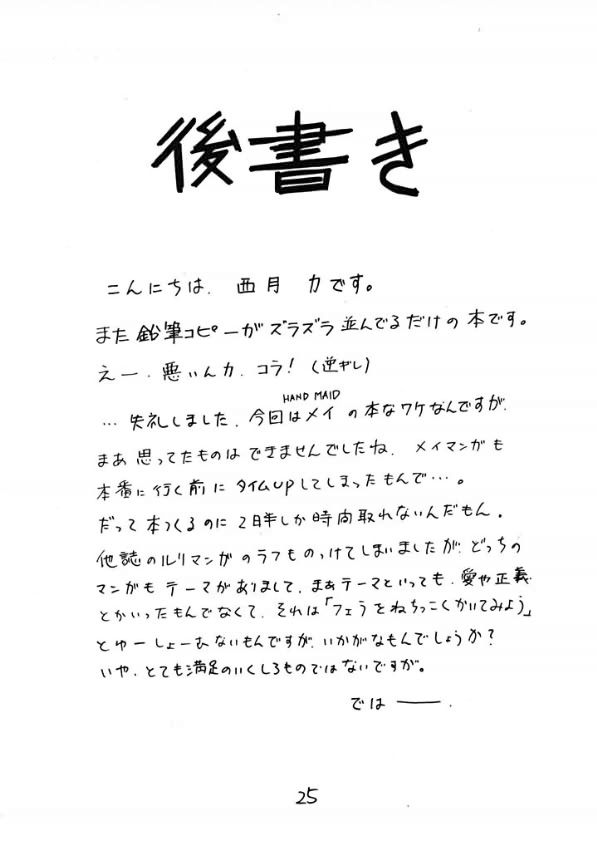 後書き
こんにちは、西月 力です。
また鉛筆コピーがズラズラ並んでるだけの本です。
えー、悪いんカ、コラ！（逆ギレ）
HAND MAID
…失礼しました、今回はメイの本なワケなんですが、
まあ思ってたものはできませんでしたね、メイマンガも
本番に行く前にタイムUPしてしまったもんで…。
だって本つくるのに2日半しか時間取れないんだもん。
他誌のルリマンガのラフものっけてしまいましたが、どっちの
マンガもテーマがありまして、まぁテーマといっても、愛や正義
とかいったもんでなくて、それは「フェラをねちっこくかいてみよう」
とゆーしょーむないもんですが、いかがなもんでしょうか？
いや、とても満足のいくしろものではないですが。
では――.
25